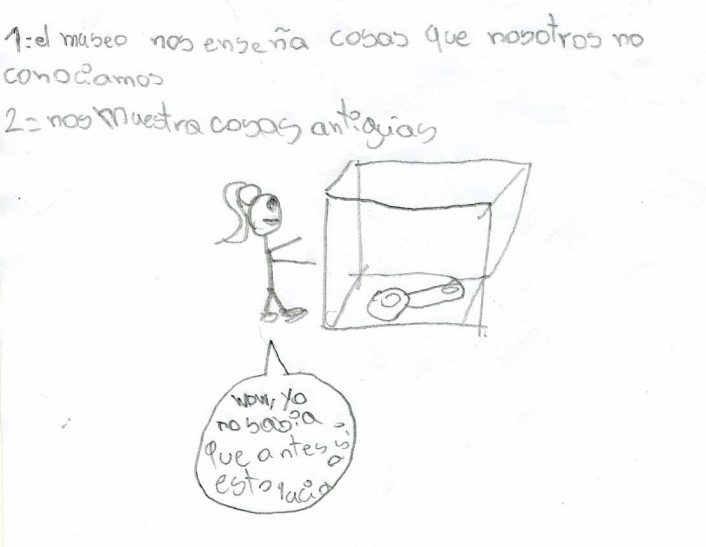 1=el museo nos enseña cosas que nosotros no
conociamos
2= nos muestra cosas antiguias
wow, yo
no sabia
que antes
esto